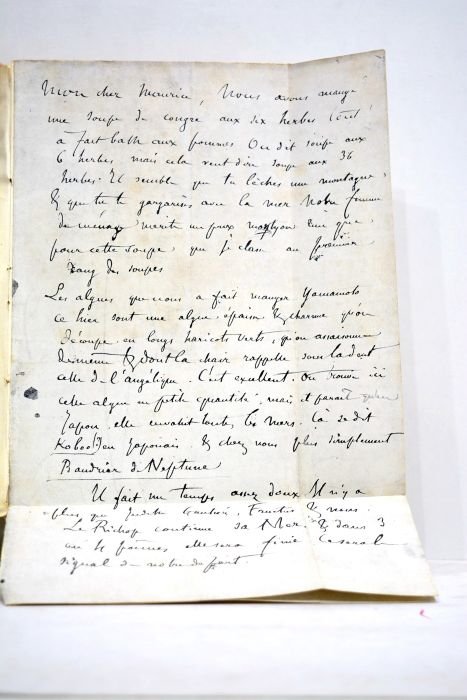 Mon cher Maurice, Nous avons mangé
une soupe de congre aux six herbes tout
à fait bath aux pommes On dit soupe aux
6 herbes mais cela veut dire soupe aux 36
herbes. Il semble que tu lèches une montagne
& que tu te gargarises avec la mer Notre femme
de ménage mérite un prix rien que
pour cette soupe, que je classe au premier
rang des soupes
Les algues que nous a fait manger Yamamoto
ce hier sont une algue épaisse & charnue qu'on
découpe en longs haricots verts, qu'on assaisonne
de même & dont la chair rappelle sous la dent
celle de l'angélique. C'est excellent. On trouve ici
cette algue en petite quantité, mais il paraît qu'au
Japon, elle envahit toutes les mers. Cà se dit
Koboo(?) en Japonais. & chez nous plus simplement
Baudrier de Neptune
Il fait un temps assez doux Il n'y a
plus que Judith Gautier, & nous.
Le Richop continue sa Mer. & dans 3
ou 4 poèmes elle sera finie Ce sera le
signal de notre départ.